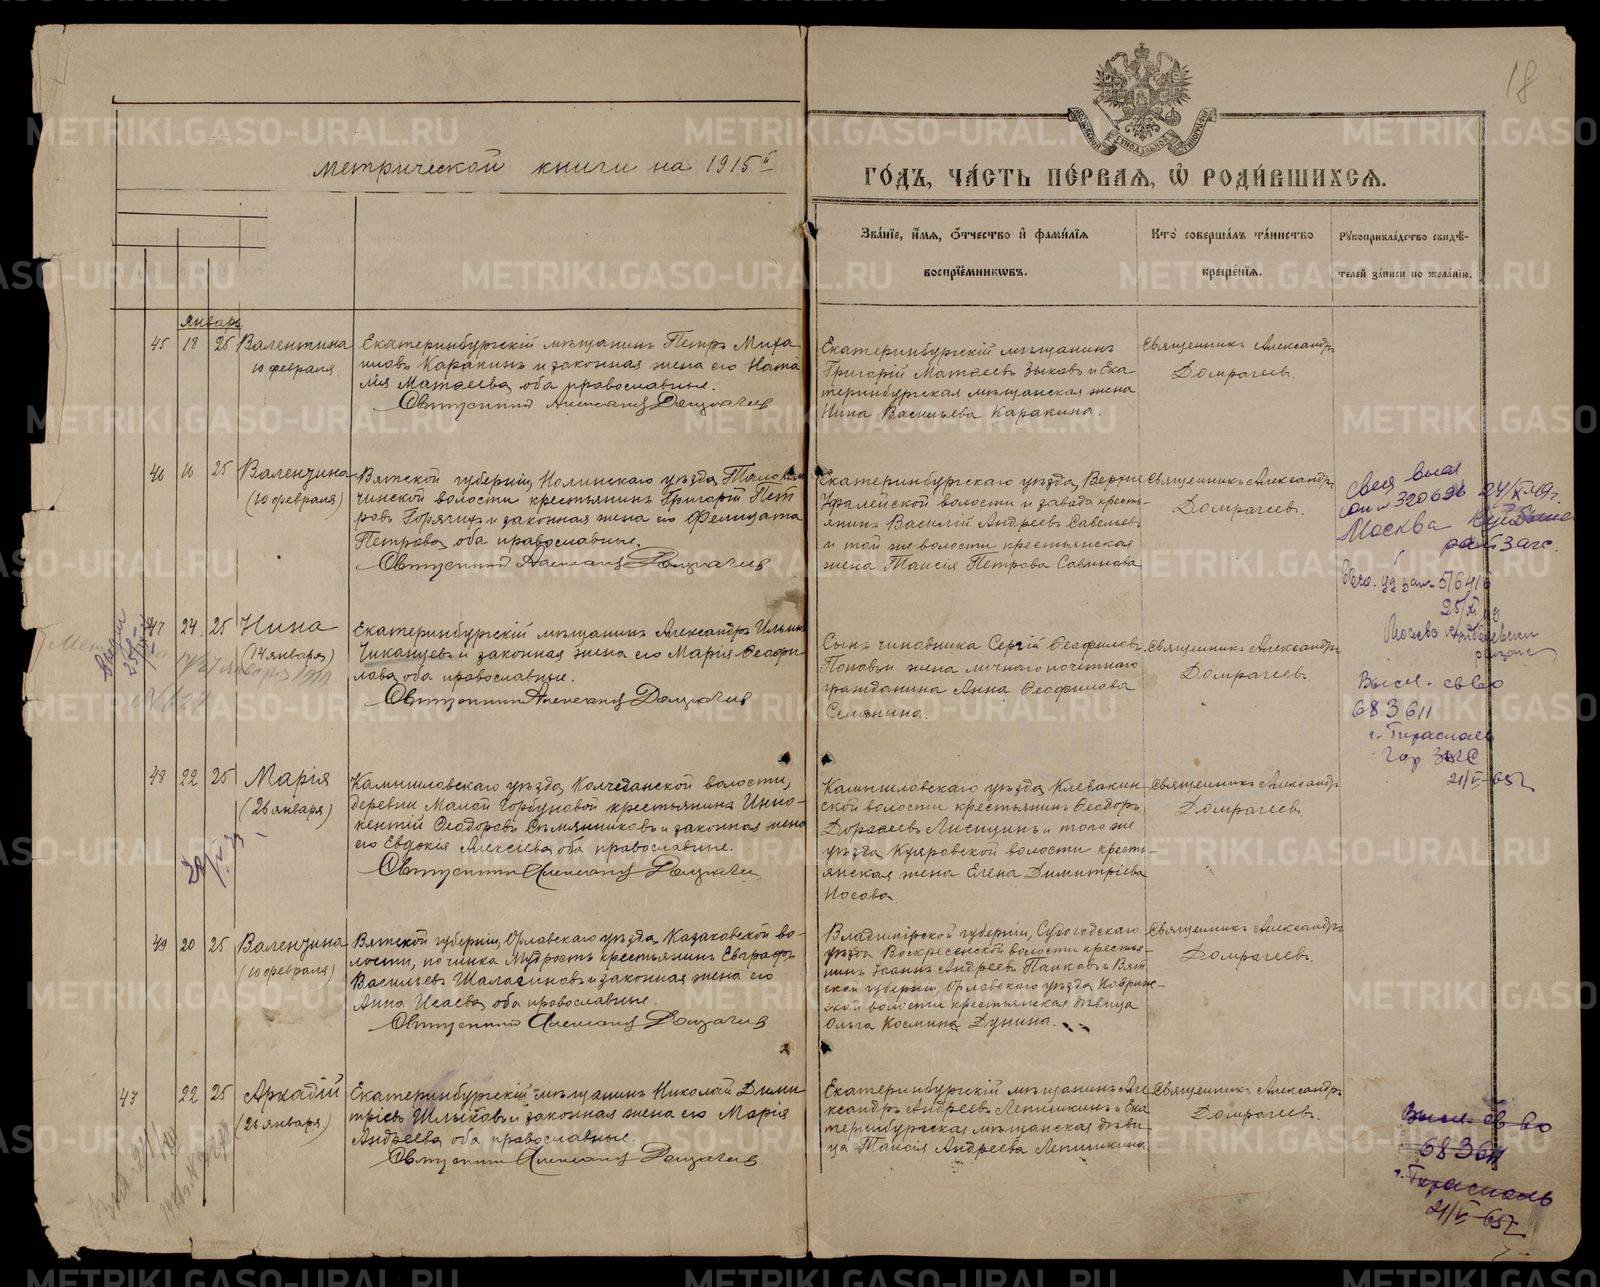 18
метрической книги на 1915й
ГОДЪ, ЧАСТЬ ПЕРВАЯ, Ѡ РОДИВШИХСЯ.
Званіе, имя, отчество и фамилія
воспріемниковъ.
Кто совершалъ таинство
крещенія.
Рукоприкладство свидѣ-
телей записи по желанію.
январь
45 18 25 Валентина
10 февраля
Екатеринбургскій мѣщанинъ Петръ Миха
иловъ Каракинъ и законная жена его Ната
лія Матѳеева, оба православные.
Екатеринбургскій мѣщанинъ
Григорій Матѳеевъ Зыковъ и Ека
теринбургская мѣщанская жена
Нина Васильева Каракина.
Священникъ Александръ
Домрачевъ.
46 10 25 Валентина
(10 февраля)
Вятской губерніи, Нолинскаго уѣзда,
чинской волости крестьянинъ Григорій Пет
ровъ Горячихъ и законная жена его Фелицата
Петрова, оба православные.
Екатеринбургскаго уѣзда, Верхне
Уфалейской волости и завода кресть-
янинъ Василій Андреевъ Савельевъ
и той же волости крестьянская
жена Таисія Петрова Савинова
Священникъ Александръ
Домрачевъ.
320696 24/X-49г.
Москва
райзагс.
47 24 25 Нина
(14 января)
Екатеринбургскій мѣщанинъ Александръ Ильинъ
Чиканцевъ и законная жена его Марія Ѳеофи-
лова, оба православные.
Сынъ чиновника Сергій Ѳеофиловъ
Поповъ и жена личнаго почетнаго
гражданина Анна Ѳеофилова
Селянина.
Священникъ Александръ
Домрачевъ.
Высл. св-во
683611
г. Тирасполь
Гор ЗАГС
21/V-65г
48 22 25 Марія
(26 января)
Камышловскаго уѣзда, Колчеданской волости,
деревни Малой Горбуновой крестьянинъ Инно-
кентій Ѳеодоровъ Сѣмянниковъ и законная жена
его Евдокія Алексіева, оба православные.
Камышловскаго уѣзда, Клевакин-
ской волости крестьянинъ Ѳеодоръ
Дороѳеевъ Лисицинъ и того же
уѣзда, Куяровской волости кресть-
янская жена Елена Димитріева
Носова.
Священникъ Александръ
Домрачевъ
49 20 25 Валентина
(10 февраля)
Вятской губерніи, Орловскаго уѣзда, Казаковской во-
лости, починка Мудрость крестьянинъ Евграфъ
Васильевъ Шалагиновъ и законная жена его
Анна Исаева, оба православные.
Владимірской губерніи, Судогодскаго
уѣзда Воскресенской волости крестья-
нинъ Іоаннъ Андреевъ Панковъ и Вят
ской губерніи, Орловскаго уѣзда,
ской волости крестьянская дѣвица
Ольга Космина Дунина.
Священникъ Александръ
Домрачевъ.
47 22 25 Аркадій
(26 января)
Екатеринбургскій мѣщанинъ Николай Дими-
тріевъ Шлыковъ и законная жена его Марія
Андреева, оба православные.
Екатеринбургскій мѣщанинъ Але
ксандръ Андреевъ Лепишкинъ и Ека
теринбургская мѣщанская дѣви-
ца Таисія Андреева Лепишкина.
Священникъ Александръ
Домрачевъ.
Высл. св во
683611
г. Тирасполь
21/V-65г
METRIKI.GASO-URAL.RU